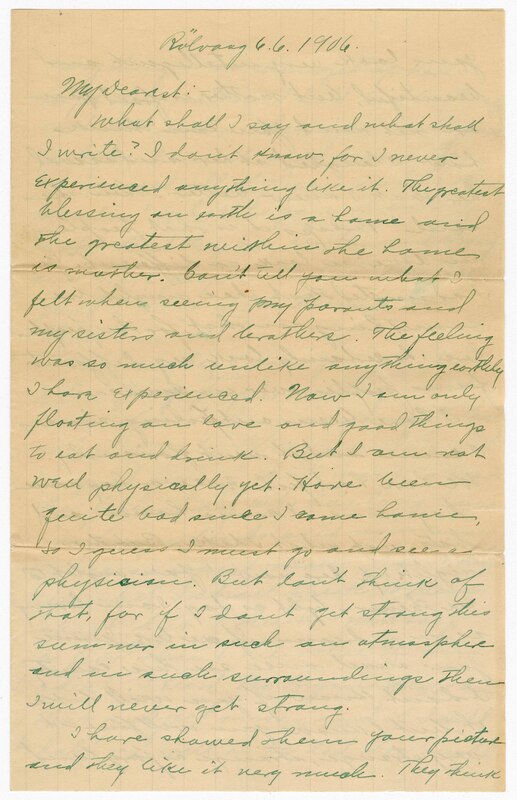 Rölvaag 6.6. 1906.
My Dearest:
What shall I say and what shall
I write? I dont know, for I never
experienced anything like it. The greatest
blessing on earth is a home and
the greatest within the home
is mother. Can't tell you what I
felt when seeing my parents and
my sisters and brothers. The feeling
was so much unlike anything earthly
I have experienced. Now I am only
floating on love and good things
to eat and drink. But I am not
well physically yet. Have been
quite bad since I came home,
so I guess I must go and see a
physician. But don't think of
that, for if I dont get strong this
summer in such an atmosphere
and in such surroundings then
I will never get strong.
I have showed them your picture
and they like it very much. They think